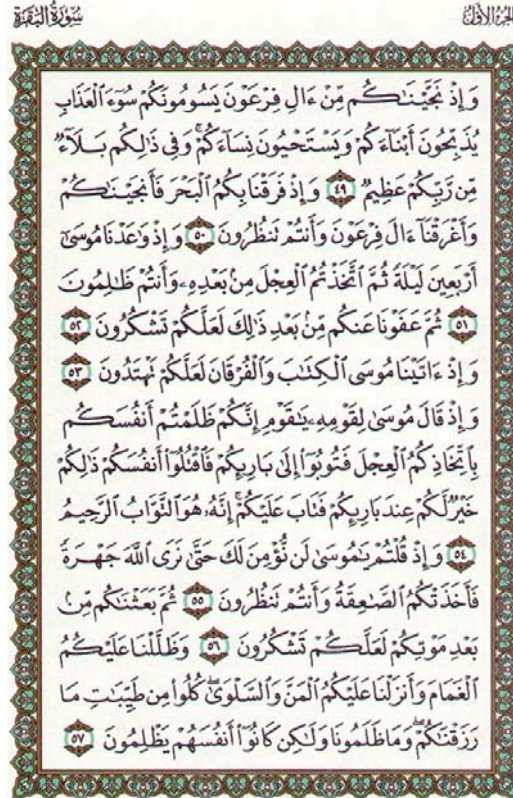 الجزء الأول سورة البقرة
وَإِذْ نَجَّيْنَٰكُم مِّنْ ءَالِ فِرْعَوْنَ يَسُومُونَكُمْ سُوٓءَ ٱلْعَذَابِ
يُذَبِّحُونَ أَبْنَآءَكُمْ وَيَسْتَحْيُونَ نِسَآءَكُمْ ۚ وَفِى ذَٰلِكُم بَلَآءٌ
مِّن رَّبِّكُمْ عَظِيمٌ ٤٩ وَإِذْ فَرَقْنَا بِكُمُ ٱلْبَحْرَ فَأَنجَيْنَٰكُمْ
وَأَغْرَقْنَآ ءَالَ فِرْعَوْنَ وَأَنتُمْ تَنظُرُونَ ٥٠ وَإِذْ وَٰعَدْنَا مُوسَىٰٓ
أَرْبَعِينَ لَيْلَةً ثُمَّ ٱتَّخَذْتُمُ ٱلْعِجْلَ مِنۢ بَعْدِهِۦ وَأَنتُمْ ظَٰلِمُونَ
٥١ ثُمَّ عَفَوْنَا عَنكُم مِّنۢ بَعْدِ ذَٰلِكَ لَعَلَّكُمْ تَشْكُرُونَ ٥٢
وَإِذْ ءَاتَيْنَا مُوسَى ٱلْكِتَٰبَ وَٱلْفُرْقَانَ لَعَلَّكُمْ تَهْتَدُونَ ٥٣
وَإِذْ قَالَ مُوسَىٰ لِقَوْمِهِۦ يَٰقَوْمِ إِنَّكُمْ ظَلَمْتُمْ أَنفُسَكُم
بِٱتِّخَاذِكُمُ ٱلْعِجْلَ فَتُوبُوٓا۟ إِلَىٰ بَارِئِكُمْ فَٱقْتُلُوٓا۟ أَنفُسَكُمْ ذَٰلِكُمْ
خَيْرٌ لَّكُمْ عِندَ بَارِئِكُمْ فَتَابَ عَلَيْكُمْ ۚ إِنَّهُۥ هُوَ ٱلتَّوَّابُ ٱلرَّحِيمُ
٥٤ وَإِذْ قُلْتُمْ يَٰمُوسَىٰ لَن نُّؤْمِنَ لَكَ حَتَّىٰ نَرَى ٱللَّهَ جَهْرَةً
فَأَخَذَتْكُمُ ٱلصَّٰعِقَةُ وَأَنتُمْ تَنظُرُونَ ٥٥ ثُمَّ بَعَثْنَٰكُم مِّنۢ
بَعْدِ مَوْتِكُمْ لَعَلَّكُمْ تَشْكُرُونَ ٥٦ وَظَلَّلْنَا عَلَيْكُمُ
ٱلْغَمَامَ وَأَنزَلْنَا عَلَيْكُمُ ٱلْمَنَّ وَٱلسَّلْوَىٰ ۖ كُلُوا۟ مِن طَيِّبَٰتِ مَا
رَزَقْنَٰكُمْ ۖ وَمَا ظَلَمُونَا وَلَٰكِن كَانُوٓا۟ أَنفُسَهُمْ يَظْلِمُونَ ٥٧